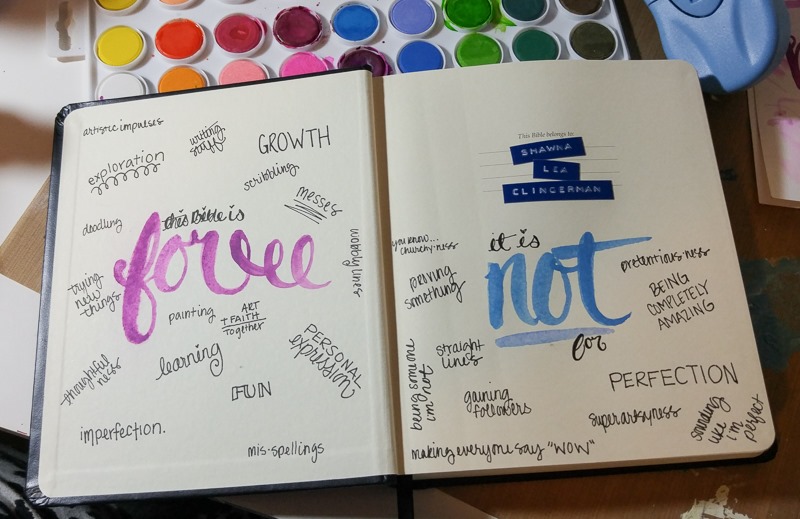 artistic impulses
writing
stuff
GROWTH
exploration
scribbling
messes
doodling
this Bible is
wobbly lines
trying
new
things
painting
ART
+ FAITH
together
PERSONAL
expression
learning
thoughtful
ness
FUN
imperfection.
mis-spellings
This Bible belongs to
SHAWNA
LEA
CLINGERMAN
you know...
churchy-ness
it is
not
for
pretentious-ness
proving
something
BEING
COMPLETELY
AMAZING
straight
lines
being someone
i'm not
PERFECTION
gaining
followers
superartsyness
sounding
like
i'm
perfect
making everyone say "WOW"